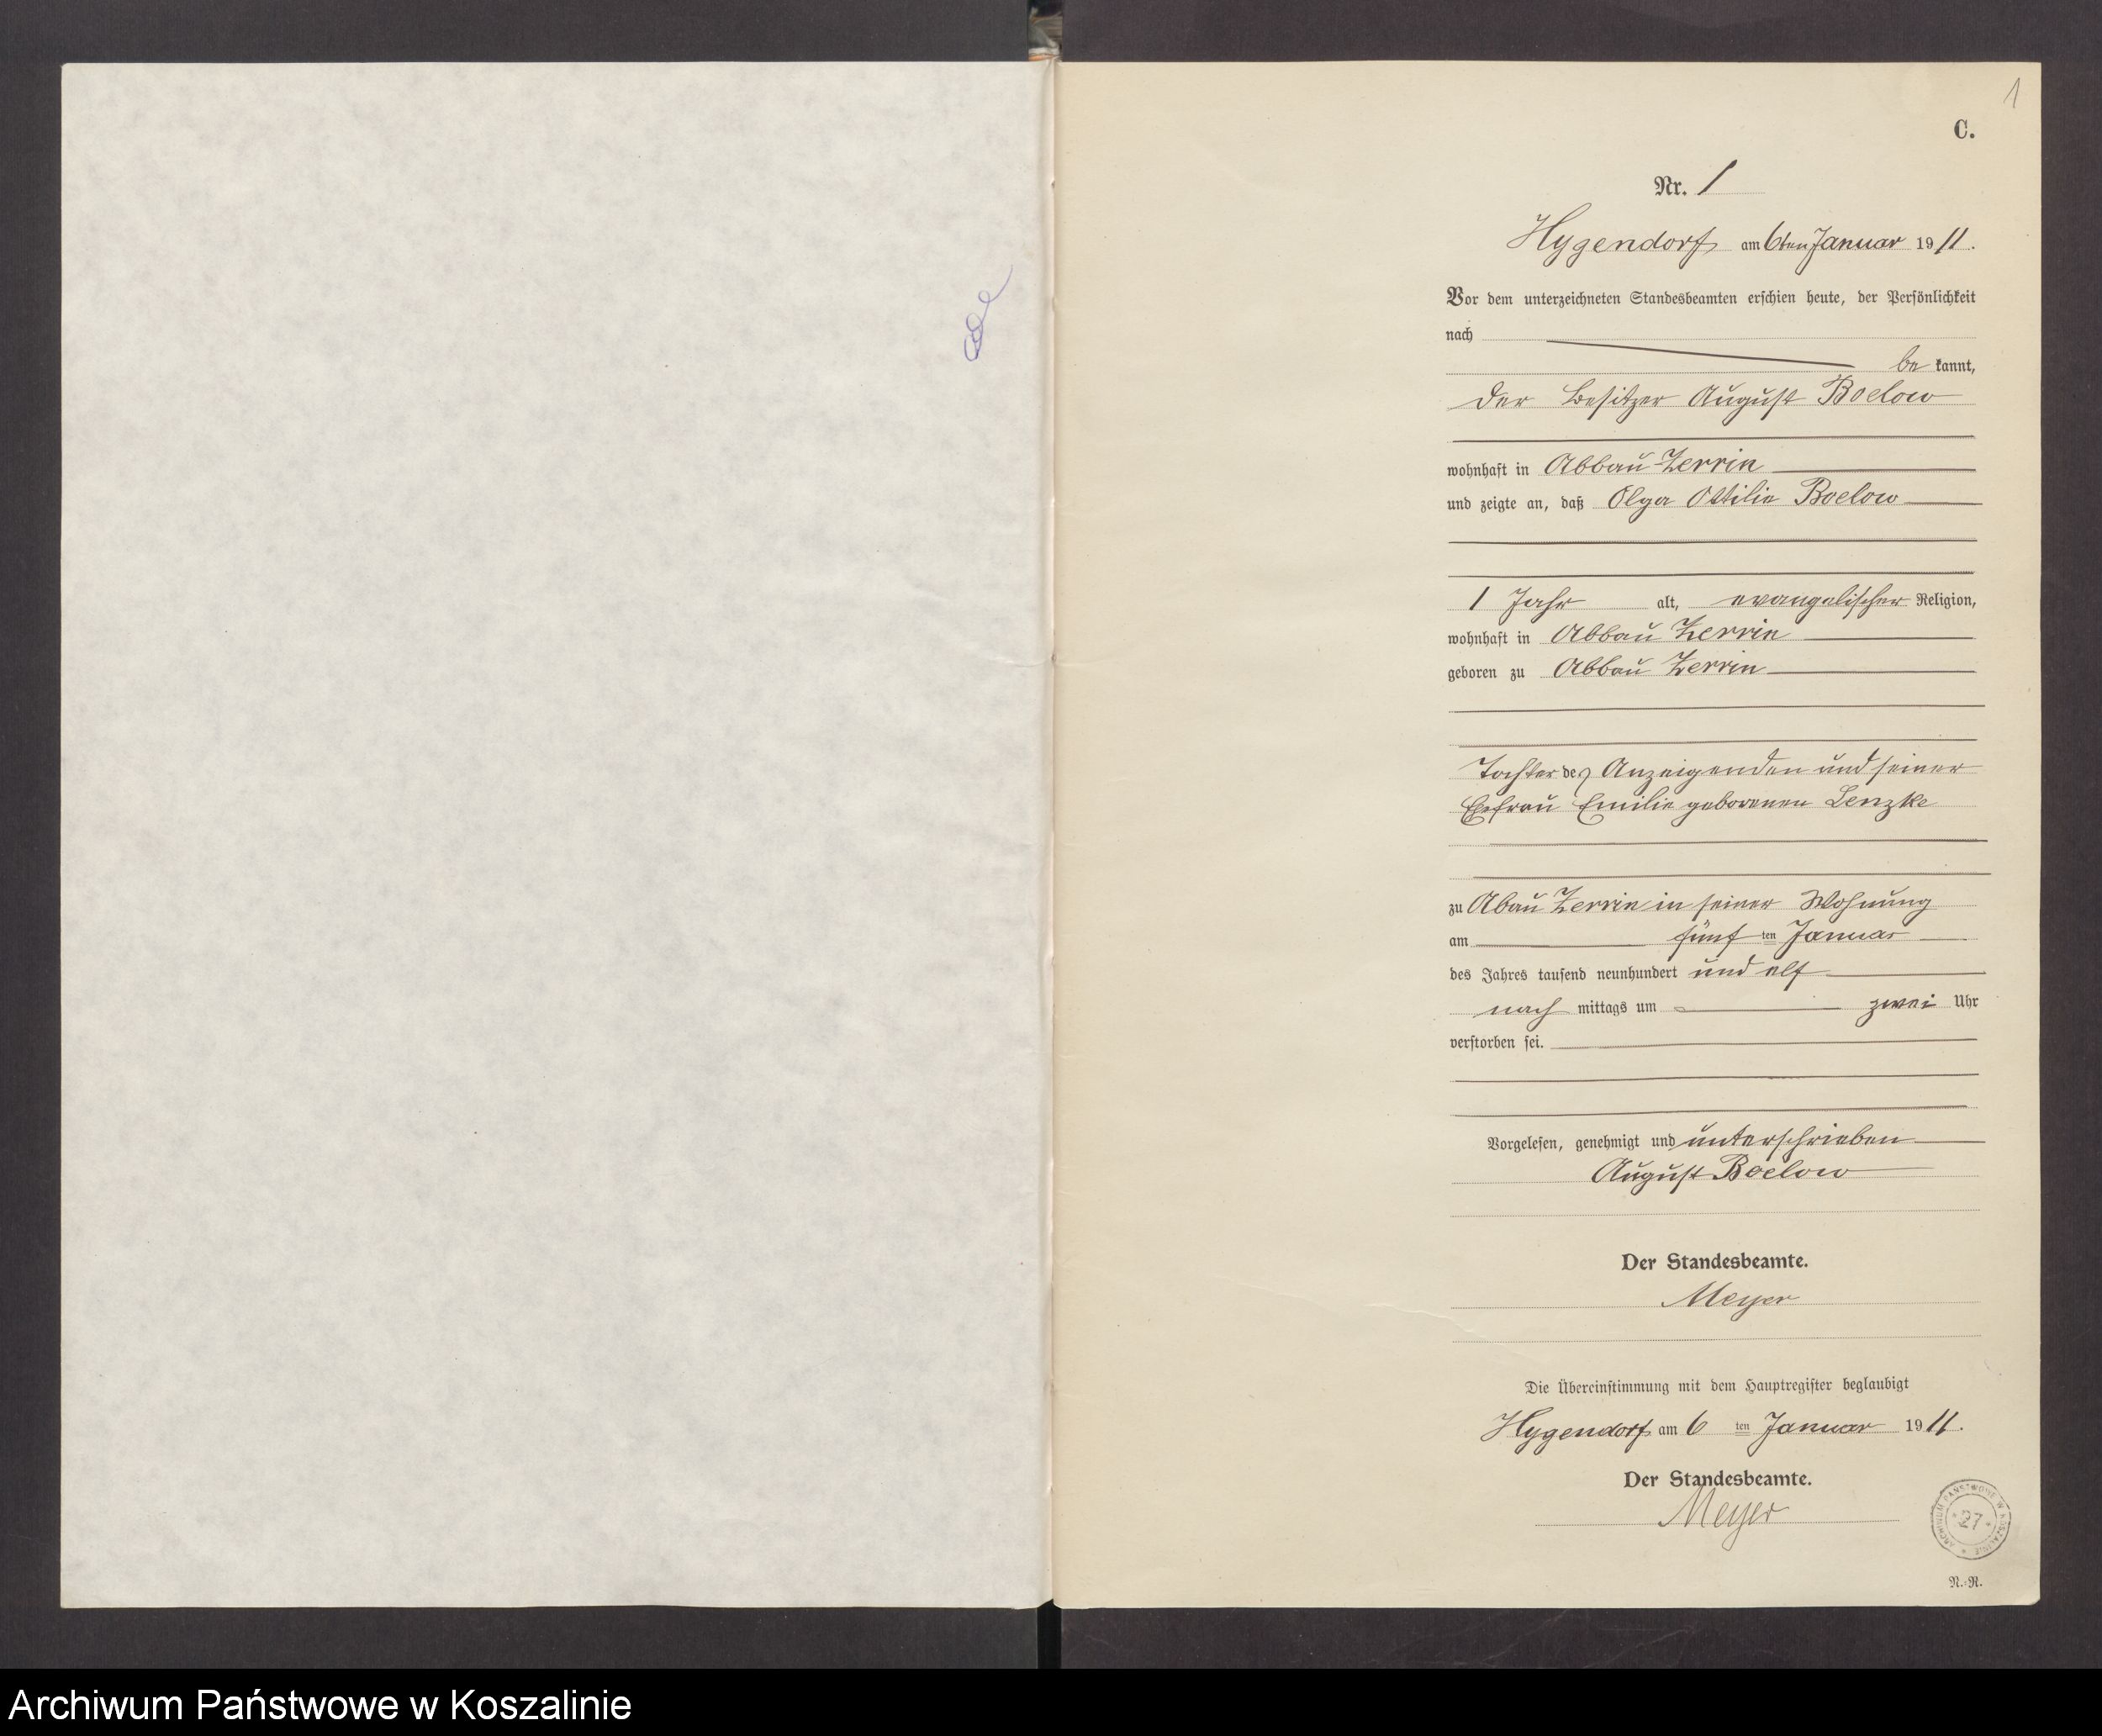 1
C.
Nr. 1
Hygendorf am 6ten Januar 1911.
Vor dem unterzeichneten Standesbeamten erschien heute, der Persönlichkeit
nach
be kannt,
der Besitzer August Boelow
wohnhaft in Abbau Zerrin
und zeigte an, daß Olga Ottilie Boelow
1 Jahr alt, evangelischer Religion,
wohnhaft in Abbau Zerrin
geboren zu Abbau Zerrin
Tochter des Anzeigenden und seiner
Ehefrau Emilie geborenen Lenzke
zu Abau Zerrin in seiner Wohnung
am fünf ten Januar
des Jahres tausend neunhundert und elf
nach mittags um zwei Uhr
verstorben sei.
Vorgelesen, genehmigt und unterschrieben
August Boelow
Der Standesbeamte.
Meyer
Die Übereinstimmung mit dem Hauptregister beglaubigt
Hygendorf am 6 ten Januar 1911.
Der Standesbeamte.
Meyer
ARCHIWUM PAŃSTWOWE W KOSZALINIE
27
N.-R.
Archiwum Państwowe w Koszalinie